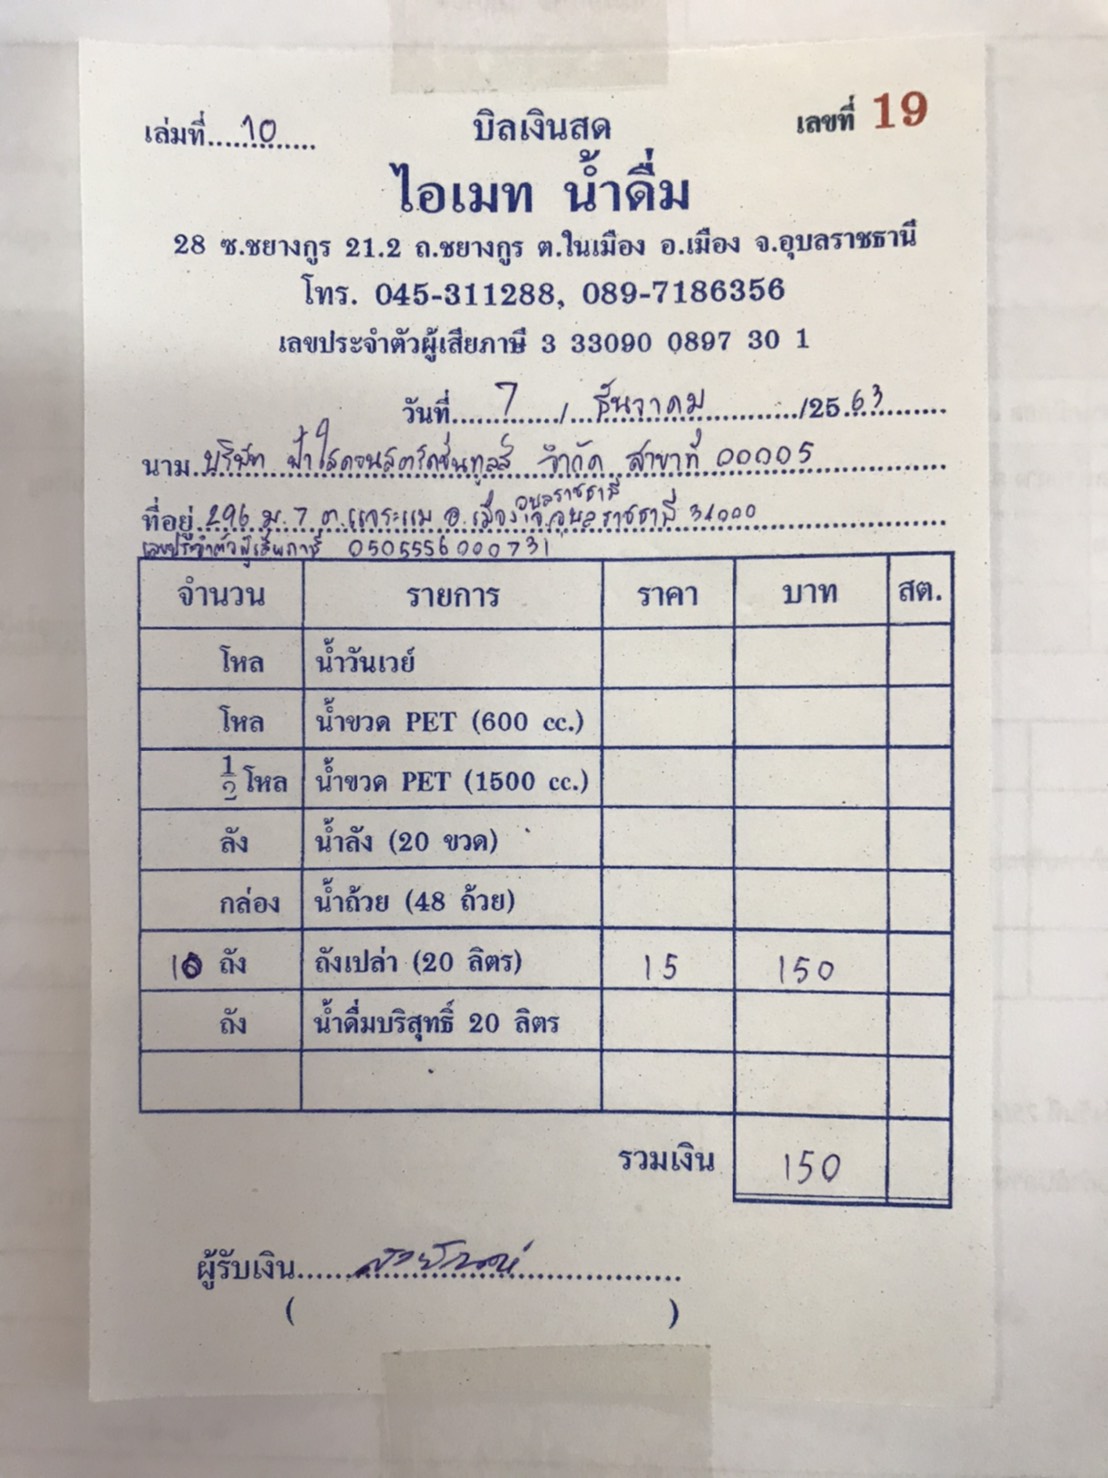 เล่มที่....10....... บิลเงินสด เลขที่ 19
ไอเมท น้ำดื่ม
28 ซ.ชยางกูร 21.2 ถ.ชยางกูร ต.ในเมือง อ.เมือง จ.อุบลราชธานี
โทร. 045-311288, 089-7186356
เลขประจำตัวผู้เสียภาษี 3 33090 0897 30 1
วันที่ 7 / ธันวาคม /2563
นาม บริษัท ฟ้าใสคอนสตรัคชั่นทูลส์ จำกัด สาขาที่ 00005
อุบลราชธานี
ที่อยู่ 296 ม.7 ต.แจระแม อ.เมือง จ.อุบลราชธานี 34000
เลขประจำตัวผู้เสียภาษี 0505556000731
จำนวน รายการ ราคา บาท สต.
โหล น้ำวันเวย์
โหล น้ำขวด PET (600 cc.)
1/2 โหล น้ำขวด PET (1500 cc.)
ลัง น้ำลัง (20 ขวด)
กล่อง น้ำถ้วย (48 ถ้วย)
10 ถัง ถังเปล่า (20 ลิตร) 15 150
ถัง น้ำดื่มบริสุทธิ์ 20 ลิตร
รวมเงิน 150
ผู้รับเงิน
( )